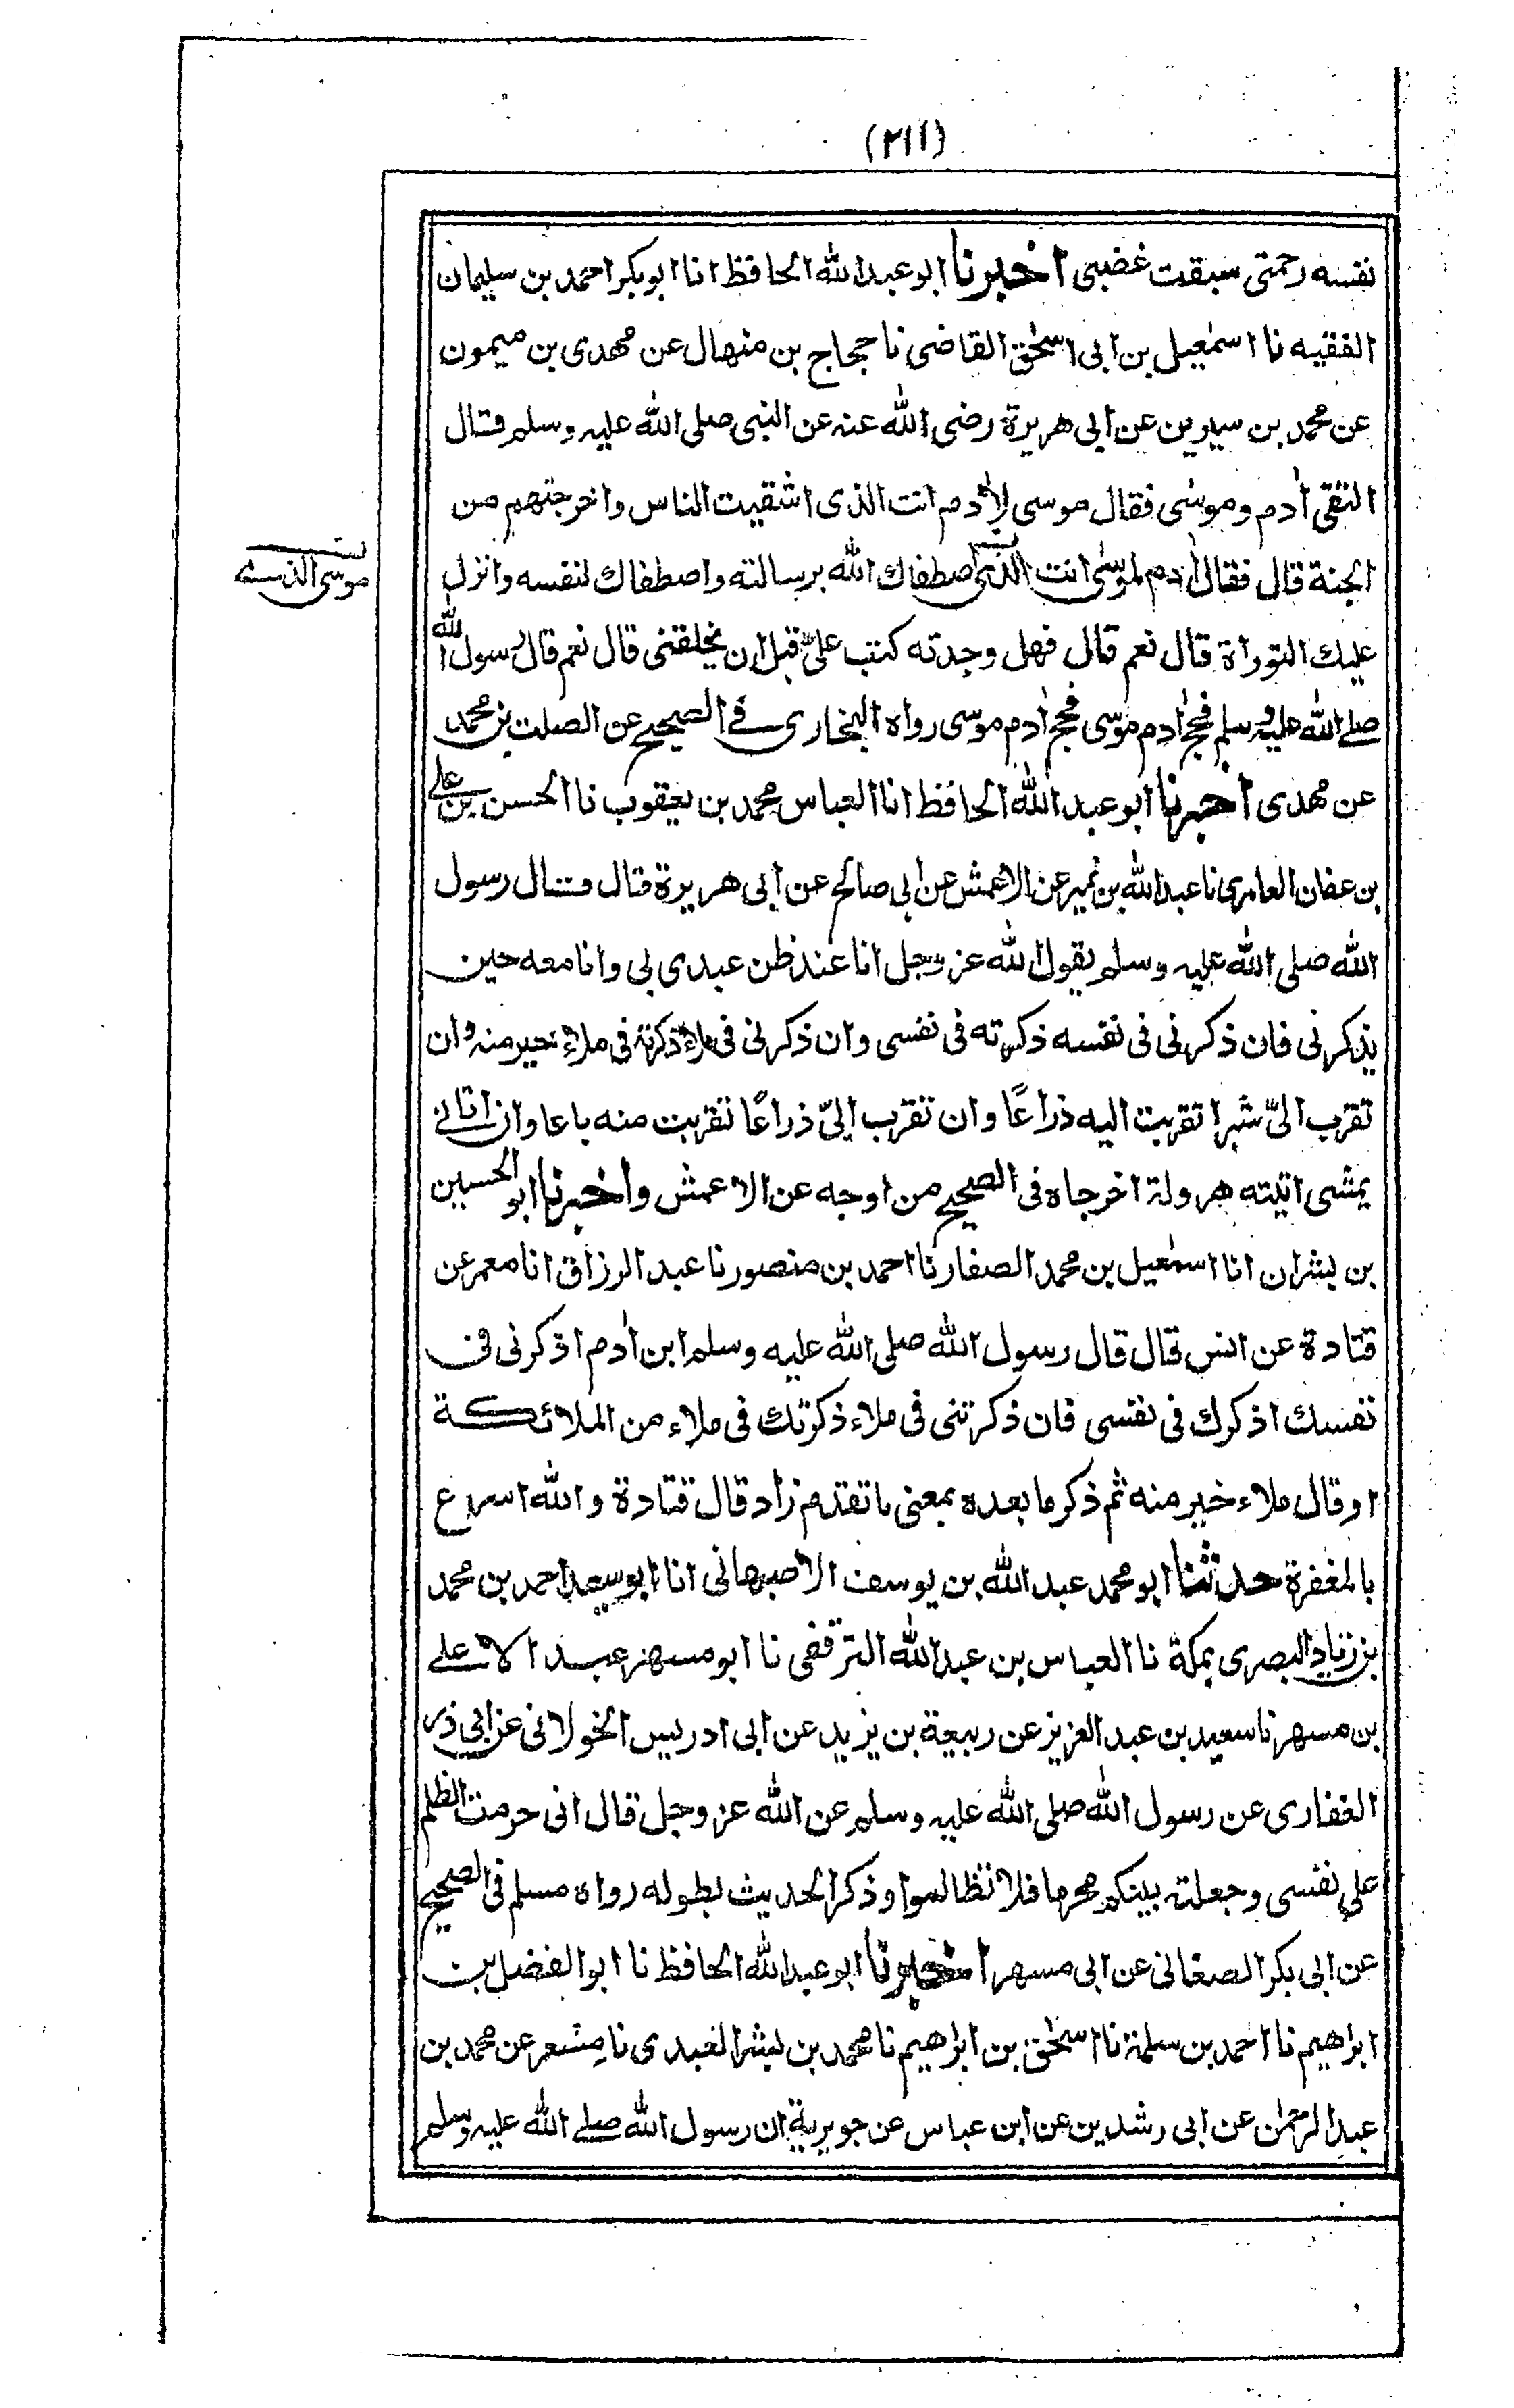 (٢١١)
نفسه رحمتى سبقت غضبى اخبرنا ابو عبد الله الحافظ انا ابوبكر احمد بن سليمان
الفقيه نا اسمٰعيل بن ابى اسحٰق القاضى نا حجاج بن منهال عن مهدى بن ميمون
عن محمد بن سيرين عن ابى هريرة رضى الله عنه عن النبى صلى الله عليه وسلم قال
التقى اٰدم وموسٰى فقال موسى لاٰدم انت الذى اشقيت الناس واخرجتهم من
الجنة قال فقال اٰدم لموسٰى انت الذى اصطفاك الله برسالته واصطفاك لنفسه وانزل
موسى الذى
عليك التوراة قال نعم قال فهل وجدته كتب علىّ قبل ان يخلقنى قال نعم قال رسول الله
صلے الله عليه وسلم فحج اٰدم موسى فحج اٰدم موسى رواه البخارى فے الصحيح عن الصلت بن محمد
عن مهدى اخبرنا ابو عبد الله الحافظ انا العباس محمد بن يعقوب نا الحسن بن علے
بن عفان العامرى نا عبد الله بن نمير عن الاعمش عن ابى صالح عن ابى هريرة قال قال رسول
الله صلى الله عليه وسلم يقول الله عز وجل انا عند ظن عبدى بى وانا معه حين
يذكرنى فان ذكرنى فى نفسه ذكرته فى نفسى وان ذكرنى فى ملاء ذكرته فى ملاء خير منه وان
تقرب الىّ شبرا تقربت اليه ذراعًا وان تقرب الىّ ذراعًا تقربت منه باعا وان اتانے
يمشى اتيته هرولة اخرجاه فى الصحيح من اوجه عن الاعمش واخبرنا ابو الحسين
بن بشران انا اسمٰعيل بن محمد الصفار نا احمد بن منصور نا عبد الرزاق انا معمر عن
قتادة عن انس قال قال رسول الله صلى الله عليه وسلم ابن اٰدم اذكرنى فى
نفسك اذكرك فى نفسى فان ذكرتنى فى ملاء ذكرتك فى ملاء من الملائكة
او قال ملاء خير منه ثم ذكر ما بعده بمعنى ما تقدم زاد قال قتادة والله اسرع
بالمغفرة حدثنا ابو محمد عبد الله بن يوسف الاصبهانى انا ابو سعيد احمد بن محمد
بن زياد البصرى بمكة نا العباس بن عبد الله الترقفى نا ابو مسهر عبد الاعلے
بن مسهر نا سعيد بن عبد العزيز عن ربيعة بن يزيد عن ابى ادريس الخولانى عن ابى ذر
الغفارى عن رسول الله صلى الله عليه وسلم عن الله عز وجل قال انى حرمت الظلم
على نفسى وجعلته بينكم محرما فلا تظالموا وذكر الحديث بطوله رواه مسلم فى الصحيح
عن ابى بكر الصغانى عن ابى مسهر اخبرنا ابو عبد الله الحافظ نا ابو الفضل بن
ابراهيم نا احمد بن سلمة نا اسحٰق بن ابراهيم نا محمد بن بشر العبدى نا مِسْعر عن محمد بن
عبد الرحمٰن عن ابى رشدين عن ابن عباس عن جويرية ان رسول الله صلے الله عليه وسلم